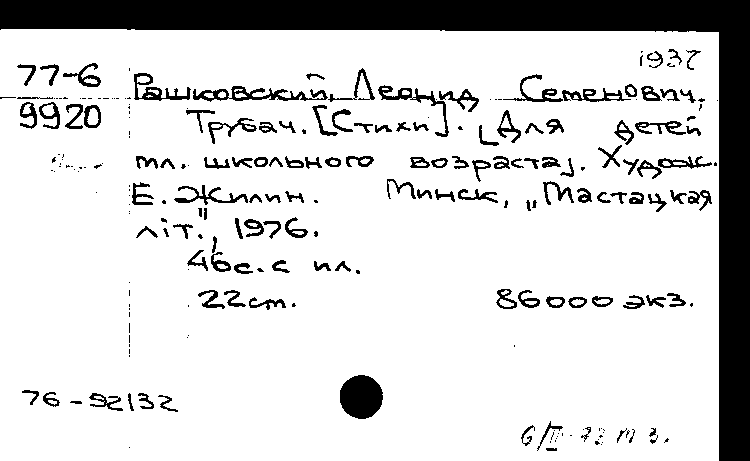 1937
77-6 Рашковский, Леонид Семенович,
9920 Трубач. [Стихи]. [Для детей
мл. школьного возраста]. Худож.
Е. Жилин. Минск, „Мастацкая
літ.", 1976.
46 с. с ил.
22 см. 86000 экз.
76-92132